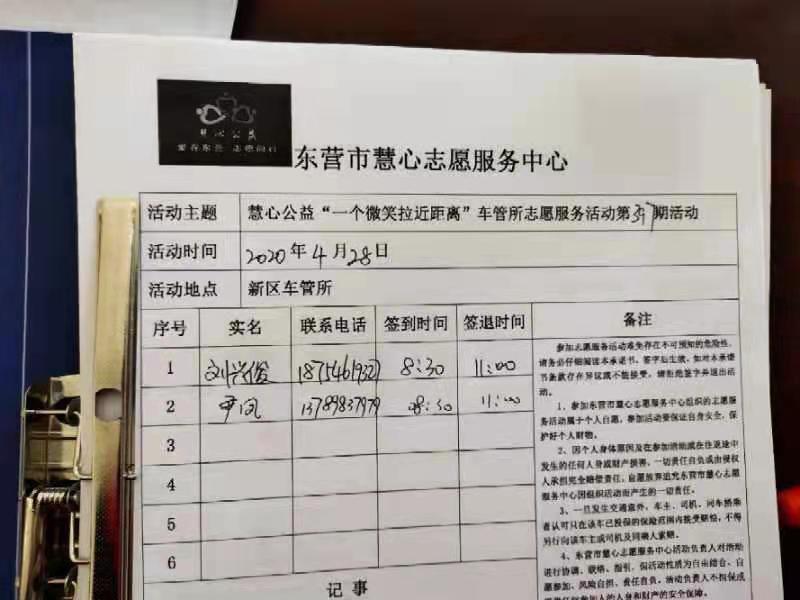 慧心公益
爱在东营 志愿同行
东营市慧心志愿服务中心
活动主题 慧心公益“一个微笑拉近距离”车管所志愿服务活动第 期活动
活动时间 2020年4月28日
活动地点 新区车管所
序号 实名 联系电话 签到时间 签退时间 备注
1 刘兴俊 18754619327 8:30 11:00
2 尹凤 13789837979 08:30 11:00
3
4
5
6
记事
参加志愿服务活动难免存在不可预知的危险性,
请务必仔细阅读本承诺书,签字后生效。如对本承诺
书条款存在异议或不能接受,请拒绝签字并退出活
动。
1、参加东营市慧心志愿服务中心组织的志愿服
务活动属于个人自愿,参加活动要保证自身安全,保
护好个人财物。
2、因个人身体原因及在参加活动或在往返途中
发生的任何人身或财产损害,一切责任自负或由侵权
人承担完全赔偿责任,自愿放弃追究东营市慧心志愿
服务中心因组织活动而产生的一切责任。
3、一旦发生交通意外,车主、司机、同车搭乘
者认可只在该车已投保的保险范围内接受赔偿,不得
另行向该车主或司机及同乘人索赔。
4、东营市慧心志愿服务中心活动负责人对活动
进行协调、联络、指引,但活动性质为自由结合、自
愿参加、风险自担、责任自负。活动负责人不担保或